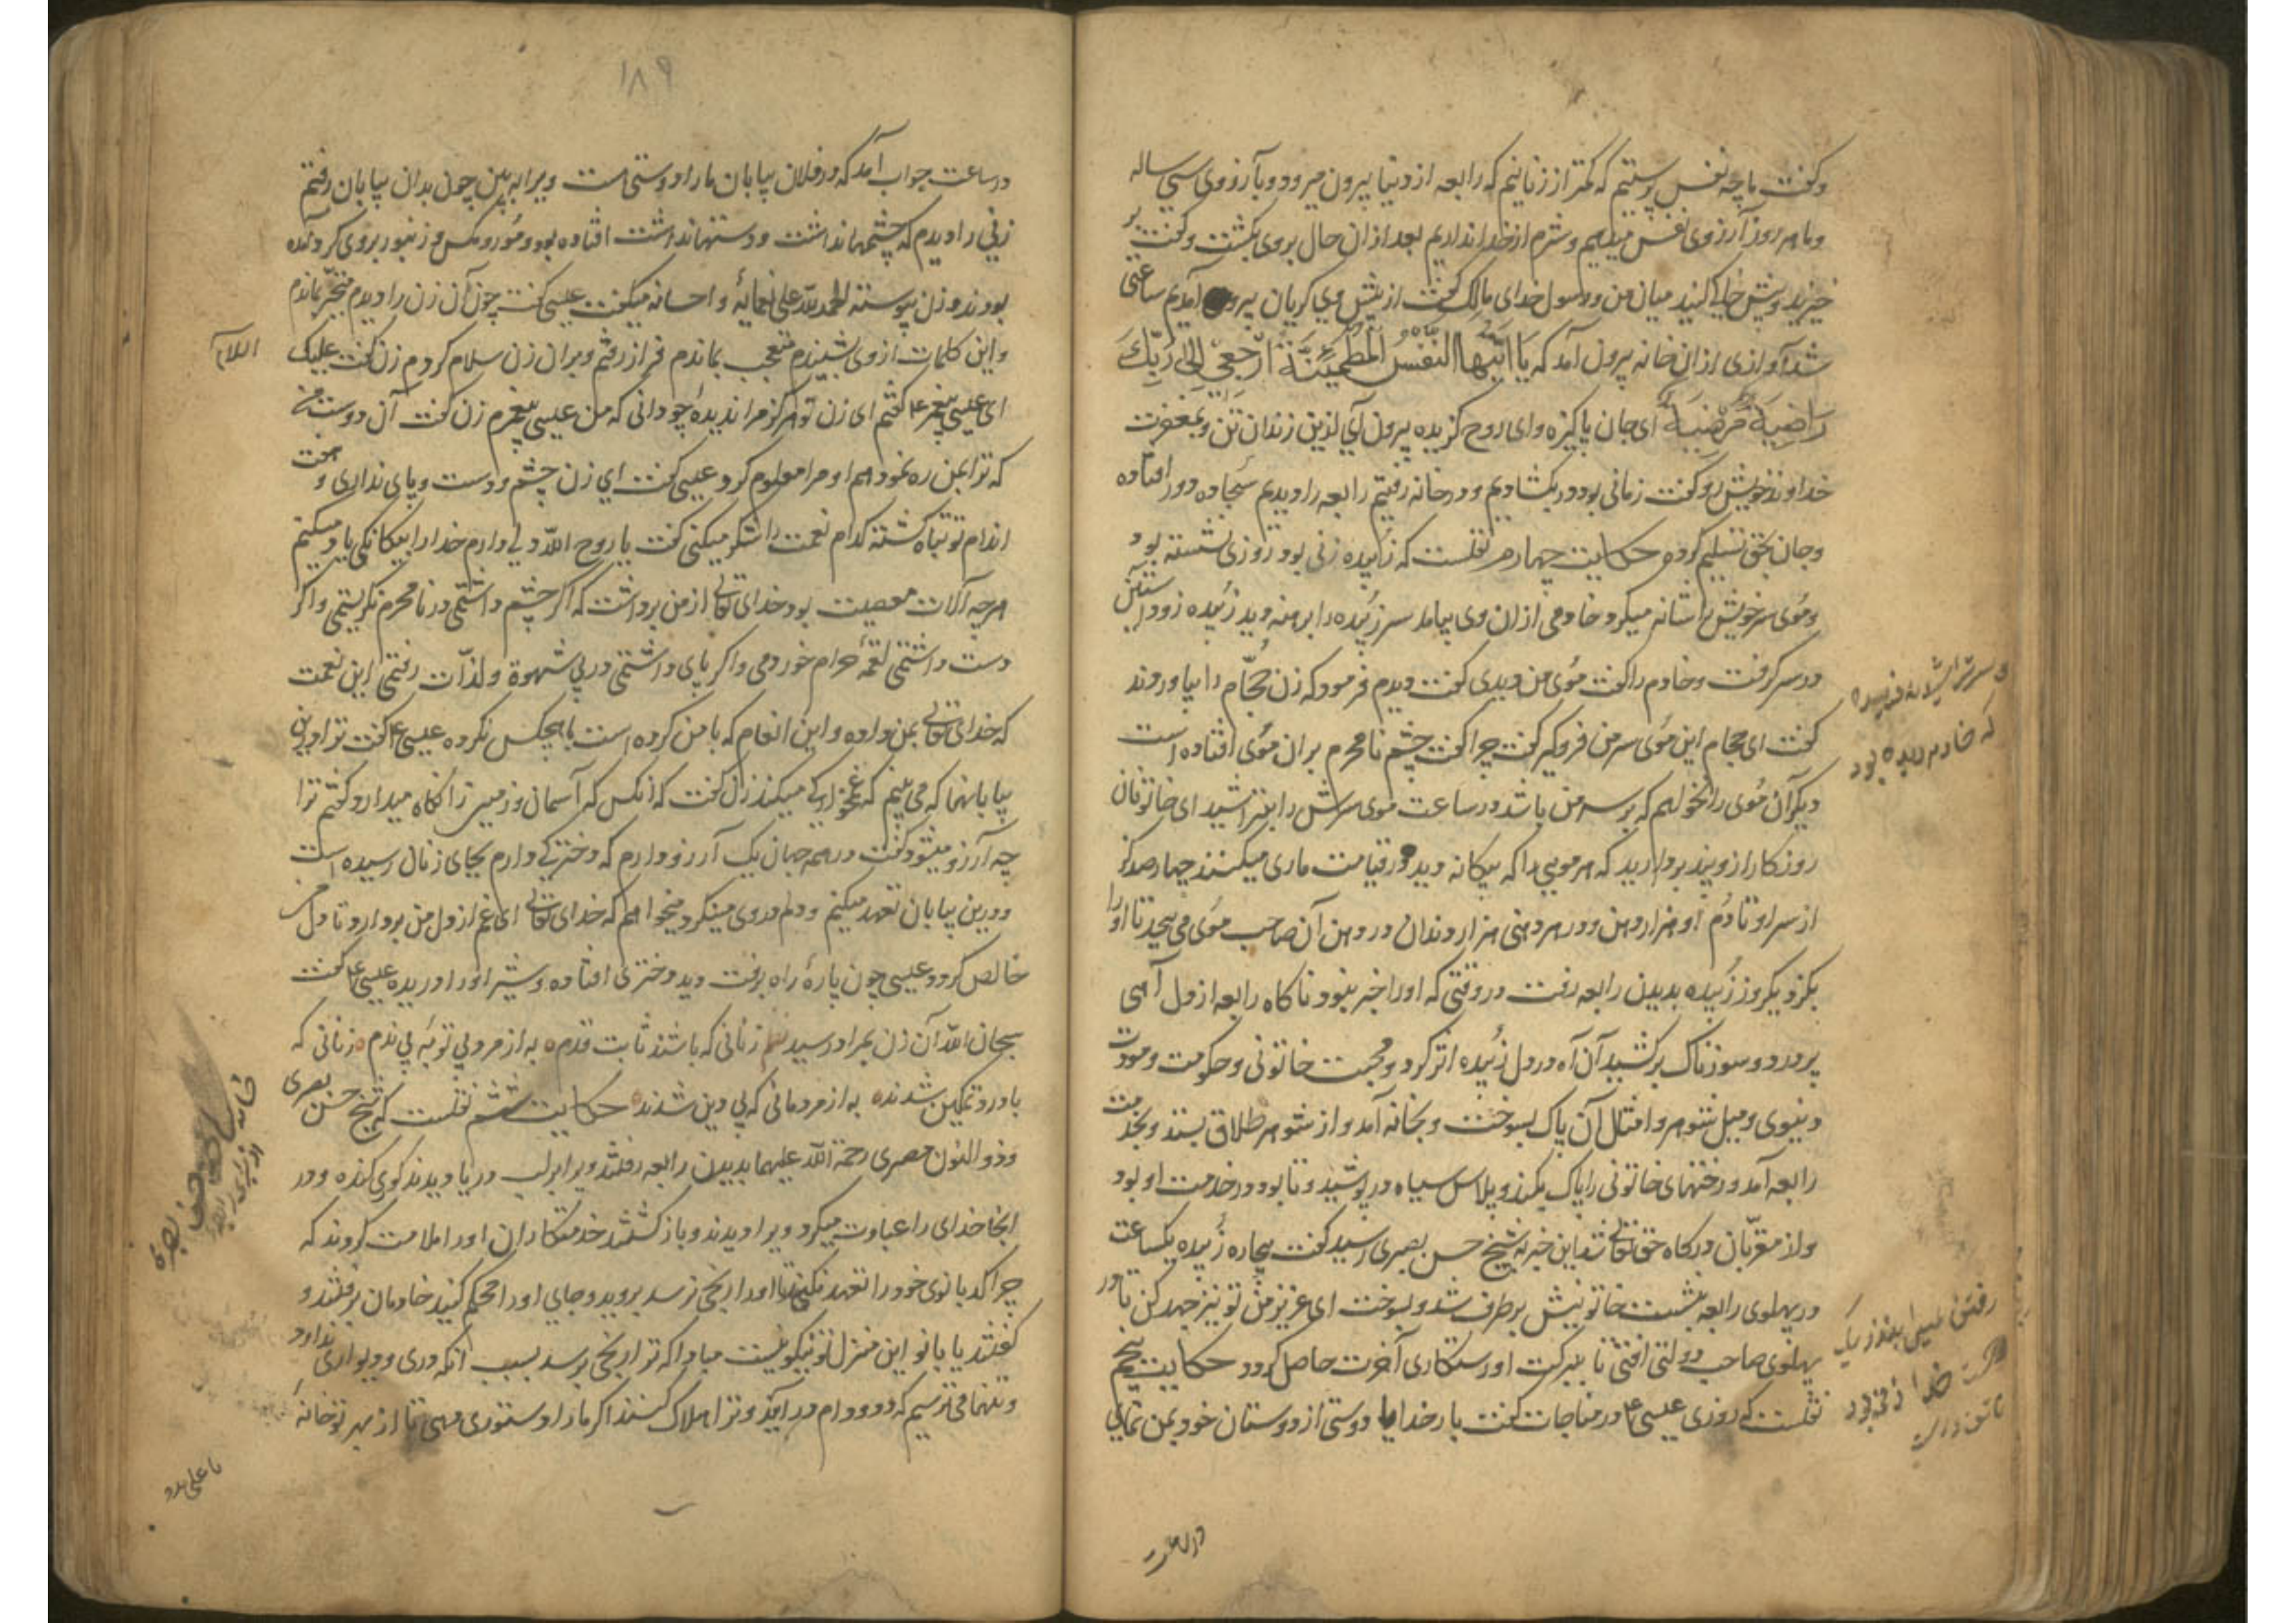 وکفت ما چه نفس پرستیم که کمتر از زنانیم که رابعه از دنیا بیرون میرود و با آرزوی سی ساله
وما هر روز آرزوی نفس میدهیم و شرم از خدا نداریم بعد از ان حال بروی بکشت وکفت بر
خیزید و پیش خالی کنید میان من و رسول خدای مالک کفت از پیش وی کریان بیرون آمدیم ساعتی
شد آوازی از ان خانه بیرون آمد که یَا اَیَّتُهَا النَّفْسُ الْمُطْمَئِنَّةُ ارْجِعِیْ اِلٰی رَبِّكَ
رَاضِیَةً مَّرْضِیَّةً ای جان پاکیزه وای روح کزیده بیرون آی ازین زندان تن و بمغفرت
خداوند خویش رو کفت زمانی بود در بکشادیم و در خانه رفتیم رابعه را دیدیم سجاده دور افتاده
وجان بحق تسلیم کرده حکایت چهارم نقلست که زُبیده زنی بود روزی نشسته بود
ومُوی سر خویش را شانه میکرد خادمی از ان وی بیامد سر زُبیده را برهنه دید زُبیده زود آستین
در سر کرفت و خادم را کفت مُوی من دیدی کفت دیدم فرمود که زن حجّام را بیاوردند
کفت ای حجام این مُوی سر من فروکیر کفت چرا کفت چشم نامحرم بران مُوی افتاده است
دیکر آن مُوی را نخواهم که بر سر من باشد در ساعت موی سرش را بتراشید ای خاتونان
روزکار ازو پند بردارید که هر مویی را که بیکانه دید در قیامت ماری میکنند چهار صد کز
از سر او تا دُم او هزار دهن و در هر دهنی هزار دندان در دهن آن صاحب مُوی می پیچد تا او را
بکزد یکروز زُبیده بدیدن رابعه رفت در وقتی که اورا خبر نبود ناکاه رابعه از دل آهی
پر درد و سوزناک برکشید آن آه در دل زُبیده اثر کرد و محبت خاتونی و حکومت و مودت
دنیوی و میل شوهر و امثال آن پاک بسوخت و بخانه آمد و از شوهر طلاق بستد و بخدمت
رابعه آمد و رختهای خاتونی را پاک بکند و پلاس سیاه در پوشید و تا بود در خدمت او بود
واز مقرّبان درکاه حق تعالی شد این خبر به شیخ حسن بصری رسید کفت بیچاره زُبیده یکساعت
در پهلوی رابعه بنشست خاتونیش بر طرف شد و بسوخت ای عزیز من تو نیز جهد کن تا در
پهلوی صاحب دولتی افتی تا ببرکت او رستکاری آخرت حاصل کردد حکایت پنجم
نقلست که روزی عیسی ع در مناجات کفت بار خدایا دوستی از دوستان خود بمن نمای
که خادم دیده بود
رفتن عیسی بنزدیک
۱۸۹
در ساعت جواب آمد که در فلان بیابان ما را دوستی هست ویرا ببین چون بدان بیابان رفتم
زنی را دیدم که چشمها نداشت و دستها نداشت افتاده بود و مُور و مکس و زنبور بروی کرد آمده
بودند و زن پیوسته الحمد لله علی نعمایٔه و احسانه میکفت عیسی کفت چون آن زن را دیدم متحیّر بماندم
واین کلمات از وی بشنیدم متعجب بماندم فراز رفتم و بران زن سلام کردم زن کفت علیک السلام
ای عیسی پیغمبر ع کفتم ای زن تو هرکز مرا ندیدهٔ چو دانی که من عیسی پیغمبرم زن کفت آن دوست من
که ترا بمن ره نمود هم او مرا معلوم کرد عیسی کفت ای زن چشم و دست و پای نداری و همت
اندام تو تباه کشته کدام نعمت را شکر میکنی کفت یا روح الله دلی دارم خدا را بیکانکی یاد میکنم
هرچه آلات معصیت بود خدای تعالی از من برداشت که اکر چشم داشتمی در نامحرم نکریستمی و اکر
دست داشتمی لقمهٔ حرام خوردمی و اکر پای داشتمی در پی شهوة و لذّات رفتمی این نعمت
که خدای تعالی بمن داده و این انعام که با من کرده است با هیچکس نکرده عیسی ع کفت ترا درین
بیابانها که می بینم که غمخوارکی میکند زن کفت که آنکس که آسمان و زمین را نکاه میدارد کفتم ترا
چه آرزو میشود کفت در همه جهان یک آرزو دارم که دخترکی دارم بجای زنان رسیده است
و درین بیابان تعهد میکنم و دلم در وی مینکرد میخواهم که خدای تعالی این غم از دل من بردارد تا دل من
خالص کردد عیسی چون پارهٔ راه برفت دید دختری افتاده و شیر اورا دریده عیسی ع کفت
سبحان الله آن زن بمراد رسید نظم زنانی که باشند ثابت قدم به از مردِ بی توبهٔ بی ندم زنانی که
با درد تمکین شدند به از مردمانی که بی دین شدند حکایت ششم نقلست که شیخ حسن بصری
وذو النون مصری رحمة الله علیهما بدیدن رابعه رفتند ویرا بر لب دریا دیدند کوی کنده و در
انجا خدای را عبادت میکرد ویرا دیدند و باز کشتند خدمتکاران اورا ملامت کردند که
چرا کدبانوی خود را تعهد نکنید تا اورا رنجی نرسد بروید و جای اورا محکم کنید خادمان برفتند و
کفتند یا بانو این منزل تو نیکو نیست مبادا که ترا رنجی برسد بسبب آنکه دری و دیواری ندارد
وتنها می ترسیم که دد و دام در آید و ترا هلاک کنند اکر ما را دستوری دهی تا از بهر تو خانهٔ